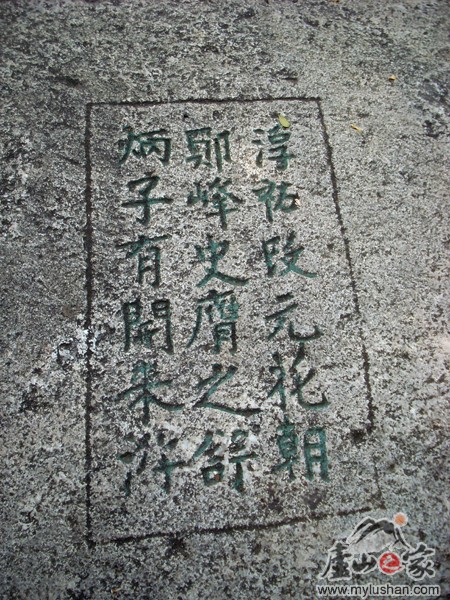 淳祐改元花朝
鄮峰史膺之舒
炳子有開来游
廬山之家
www.mylushan.com